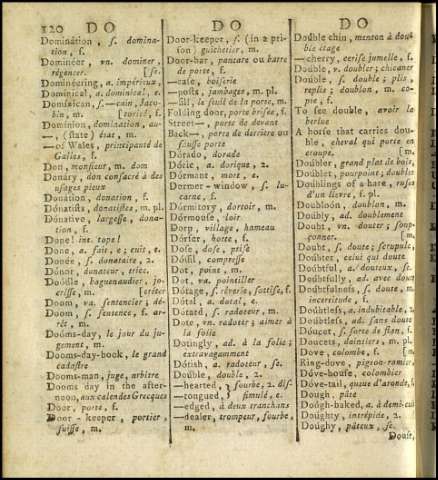 120 DO
DO
DO
Domination, s. domina-
tion, f.
Domineer, vn. dominer,
régenter. [se.
Domineering, a. impérieux,
Dominical, a. dominical, e.
Dominican, s. —cain, Jaco-
bin, m. [torité, f.
Dominion, domination, au-
—, (state) état, m.
—of Wales, principauté de
Galles, f.
Don, monsieur, m. dom
Donary, don consacré à des
usages pieux
Donation, donation, f.
Donatist, donatistes, m. pl.
Donative, largesse, dona-
tion, f.
Done! int. tope!
Done, a. fait, e; cuit, e.
Donee, s. donataire, 2.
Donor, donateur, trice.
Doodle, baguenaudier, jo-
crisse, m. [créter
Doom, va. sentencier; dé-
Doom, s. sentence, f. ar-
rêt, m.
Dooms-day, le jour du ju-
gement, m.
Dooms-day-book, le grand
cadastre
Dooms-man, juge, arbitre
Dooms day in the after-
noon, aux calendes Grecques
Door, porte, f.
Door - keeper, portier,
suisse, m.
Door-keeper, s. (in a pri-
son) guichetier, m.
Door-bar, pancare ou barre
de porte, f.
—case, boiserie
—posts, jambages, m. pl.
—sill, le seuil de la porte, m.
Folding door, porte brisée, f.
Street—, porte de devant
Back—, porte de derrière ou
fausse porte
Dorado, dorade
Doric, a. dorique, 2.
Dormant, mort, e.
Dormer - window, s. lu-
carne, f.
Dormitory, dortoir, m.
Dormouse, loir
Dorp, village, hameau
Dorser, hotte, f.
Dose, dose, prise
Dossil, compresse
Dot, point, m.
Dot, va. pointiller
Dotage, s. rêverie, sottise, f.
Dotal, a. dotal, e.
Dotard, s. radoteur, m.
Dote, vn. radoter; aimer à
la folie
Dotingly, ad. à la folie;
extravagamment
Dottish, a. radoteur, se.
Double, double, 2.
—hearted, } fourbe, 2. dis-
—tongued, } simulé, e.
—edged, à deux tranchans
—dealer, trompeur, fourbe,
m.
Double chin, menton à dou-
ble étage
—cherry, cerise jumelle, f.
Double, v. doubler; chicaner
Double, s. double; plis,
replis; doublon, m. co-
pie, f.
To see double, avoir la
berlue
A horse that carries dou-
ble, cheval qui porte en
croupe, [m.
Doubler, grand plat de bois,
Doublet, pourpoint; doublet
Doublings of a hare, ruses
d'un lievre, f. pl.
Doubloon, doublon, m.
Doubly, ad. doublement
Doubt, vn. douter; soup-
çonner. [m.
Doubt, s. doute; scrupule,
Doubter, celui qui doute
Doubtful, a. douteux, se.
Doubtfully, ad. avec doute
Doubtfulness, s. doute, m.
incertitude, f.
Doubtless, a. indubitable, 2.
Doubtless, ad. sans doute
Doucet, s. sorte de flan, f.
Doucets, daintiers, m. pl.
Dove, colombe, f. [m.
Ring-dove, pigeon-ramier,
Dove-house, colombier
Dove-tail, queue d'aronde, f.
Dough, pâte
Dough-baked, a. demi-cuit
Doughty, intrépide, 2.
Doughy, pâteux, se.
Douse,